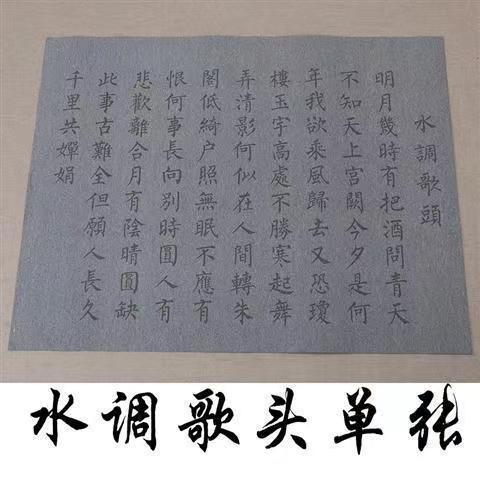 水調歌頭
明月幾時有把酒問青天
不知天上宮闕今夕是何
年我欲乘風歸去又恐瓊
樓玉宇高處不勝寒起舞
弄清影何似在人間轉朱
閣低綺户照無眠不應有
恨何事長向别時圓人有
悲歡離合月有陰晴圓缺
此事古難全但願人長久
千里共嬋娟
水调歌头单张